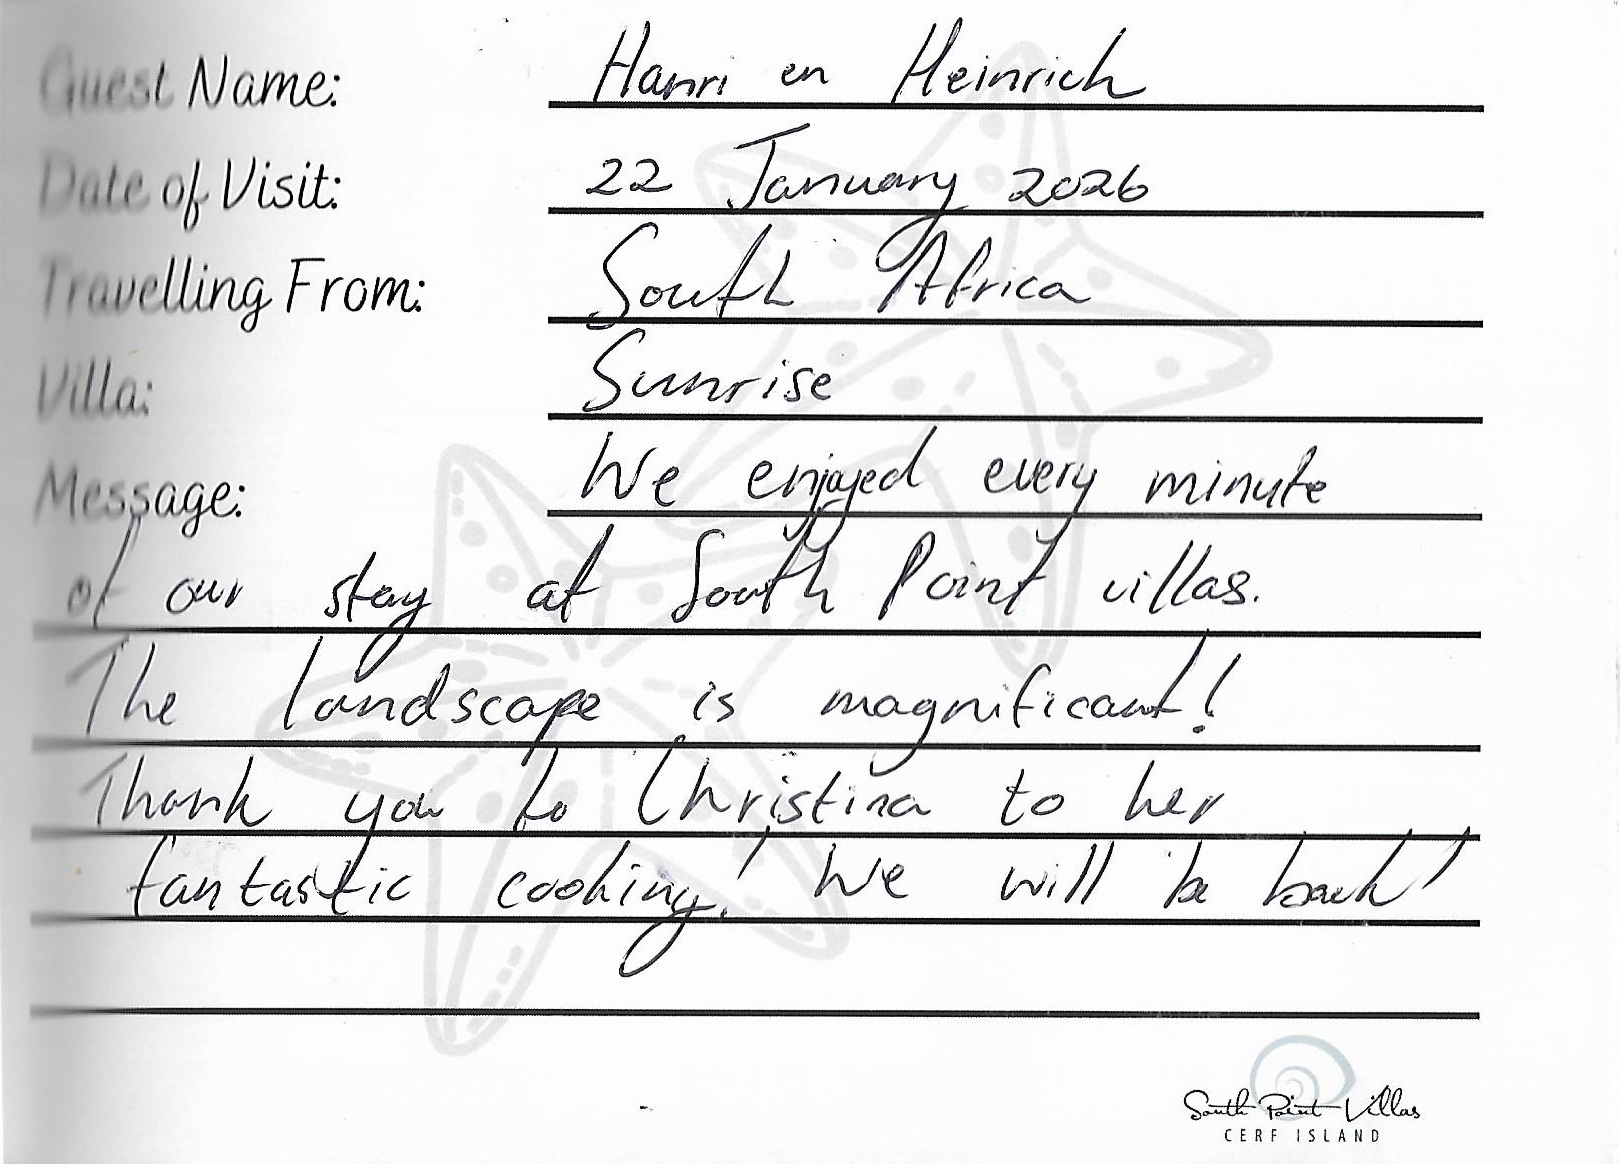 Guest Name: Hanri en Heinrich
Date of Visit: 22 January 2026
Travelling From: South Africa
Villa: Sunrise
Message: We enjoyed every minute
of our stay at South Point villas.
The landscape is magnificant!
Thank you to Christina to her
fantastic cooking! We will be back!
South Point Villas
CERF ISLAND